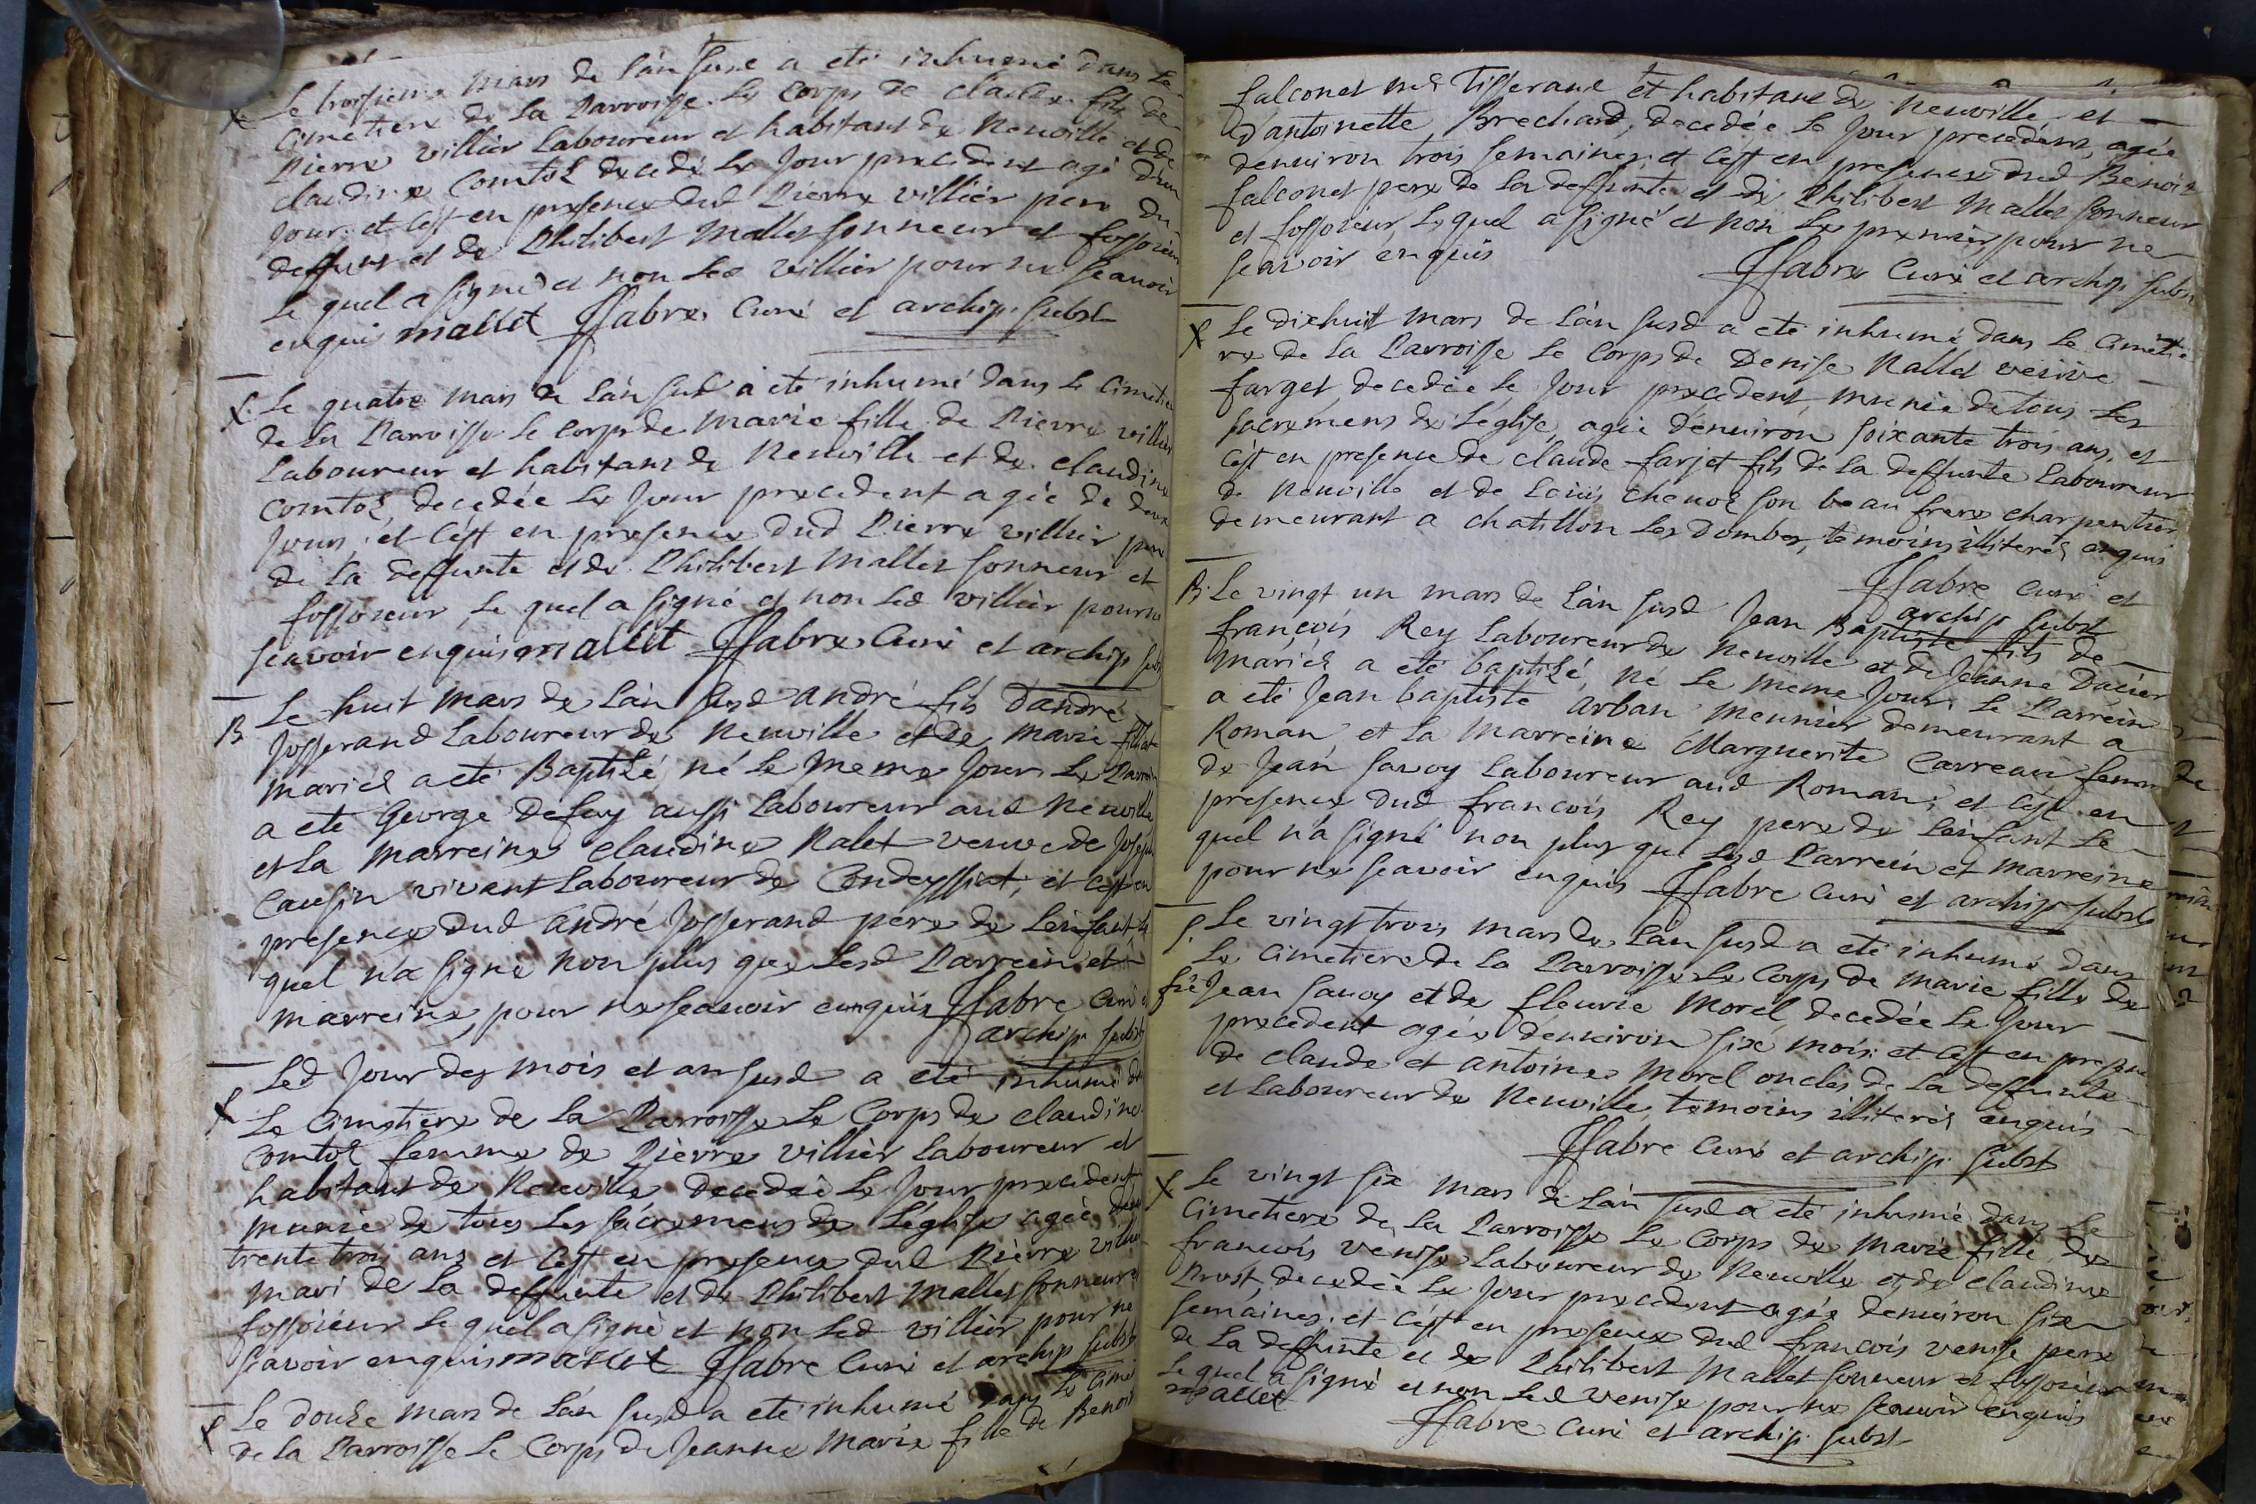 Le troisieme mars de l'an susd a eté inhumé dans le
Cimetiere de la Parroisse le Corps de claude fils de
Pierre villier Laboureur et habitant de Neuville et de
claudine Comtoz decedé le Jour precedent agé d'un
Jour. et c'est en presence dud Pierre villier pere du
deffunt et de Philibert Mallet sonneur et fossoieur
le quel a signé et non led villier pour ne scavoir
enquis mallet JJabre Curé et archip. subst
X Le quatre mars de l'an susd a eté inhumé dans le Cimetie
de la Parroisse le corps de marie fille de Pierre villier
Laboureur et habitant de Neuville et de claudine
Comtoz, decedée le Jour precedent agée de deux
Jours, et c'est en presence dud Pierre villier pere
de la deffunte et de Philibert Mallet sonneur et
fossoieur, le quel a signé et non led villier pour ne
scavoir enquis mallet JJabre Curé et archip subst
B Le huit mars de l'an susd andré fils d'andré
Josserand Laboureur de Neuville et de marie
mariés a eté Baptisé, né le meme Jour, le Parrein
a eté George defay aussi Laboureur aud Neuville
et la marreine claudine Ralet veuve de Joseph
Causin vivant Laboureur de Condeyssiat, et c'est en
presence dud andré Josserand pere de l'enfant le
quel n'a signé non plus que lesd Parrein et
marreine, pour ne scavoir enquis JJabre Curé et
archip. subst
X Led Jour des mois et an susd a eté inhumé da
Le Cimetiere de la Parroisse le Corps de claudine
Comtoz femme de Pierre villier Laboureur et
habitant de Neuville decedée le Jour precedent
munie de tous les sacremens de L'église agée
trente trois ans et c'est en presence dud Pierre villier
mari de la deffunte et de Philibert Mallet sonneur et
fossoieur le quel a signé et non led villier pour ne
scavoir enquis mallet JJabre Curé et archip subst
Le douze mars de l'an susd a eté inhumé dans le Cimet
de la Parroisse le Corps de Jeanne Marie fille de Benoit
falconet me Tisserant et habitant de Neuville et
d'antoinette Brechard, decedée le Jour precedent, agée
denviron trois semaines. et c'est en presence dud Benoit
falconet pere de la deffunte et de Philibert Mallet sonneur
et fossoieur, le quel a signé et non le premier pour ne
scavoir enquis
JJabre Curé et archip. subst
X Le dixhuit mars de l'an susd a eté inhumé dans le Cimetie
re de la Parroisse le Corps de Denise Rallet veuve
farget, decedée le Jour precedent, munie de tous les
sacremens de l'église, agée d'environ soixante trois ans, et
c'est en presence de claude farjet fils de la deffunte Laboureur
de Neuville et de Loüis chenoz son beau frere charpentier
demeurant a chatillon les Dombes, témoins illiterés enquis
JJabre Curé et
archip subst
B. Le vingt un mars de l'an susd Jean Baptiste fils de
françois Rey Laboureur de Neuville et de Jeanne Dacier
mariés a eté baptisé, né le meme Jour, le Parrein
a eté Jean baptiste arban meunier demeurant a
Roman, et la Marreine Marguerite Carreau femme
de Jean savoy Laboureur aud Roman; et c'est en
presence dud francois Rey pere de l'enfant le
quel n'a signé non plus que lesd Parrein et marreine
pour ne scavoir enquis JJabre Curé et archip subst
Le vingt trois mars de l'an susd a eté inhumé dans
Le Cimetiere de la Parroisse le Corps de marie fille de
Jean savoy et de fleurie Morel decedée le Jour
precedent agée denviron six mois. et c'est en presence
de claude et antoine Morel oncles de la deffunte
et Laboureur de Neuville, temoins illiterés enquis
JJabre Curé et archip. subst
X Le vingt six mars de l'an susd a eté inhumé dans le
Cimetiere de la Parroisse le Corps de marie fille de
francois venise Laboureur de Neuville et de claudine
Prost, decedée le Jour precedent agée denviron six
semaines. et c'est en presence dud francois venise pere
de la deffunte et de Philibert Mallet sonneur et fossoieur
le quel a signé et non led venise pour ne scavoir enquis
mallet
JJabre Curé et archip. subst